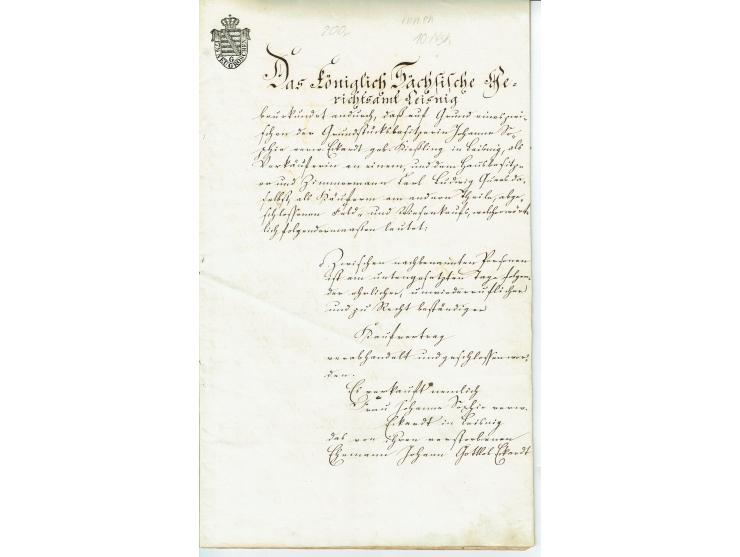 200,-
NEUGROSCHEN
Das Königlich Sächsische Ge-
richtsamt Leisnig
beurkundet andurch, daß auf Grund eines zwi-
schen der Grundstücksbesitzerin Johanne So-
phie verw. Eckardt geb. Kießling in Leisnig, als
Verkäuferin an einem, und dem Hausbesitz-
er und Zimmermann Carl Ludwig da-
selbst, als Käuferm am andern Theile, abge-
schlossenen Feld- und Wiesenkaufs, welcher wört-
lich folgendermaaßen lautet:
Zwischen nachbenannten Personen
ist am untengesetzten Tage folgen-
der ehrlicher, unwiederruflicher
und zu Recht beständiger
Kaufvertrag
verabhandelt und geschlossen wor-
den.
Es verkauft nemlich
Frau Johanne Sophie verw.
Eckardt in Leisnig
das von ihrem verstorbenen
Ehemann Johann Gottlob Eckardt